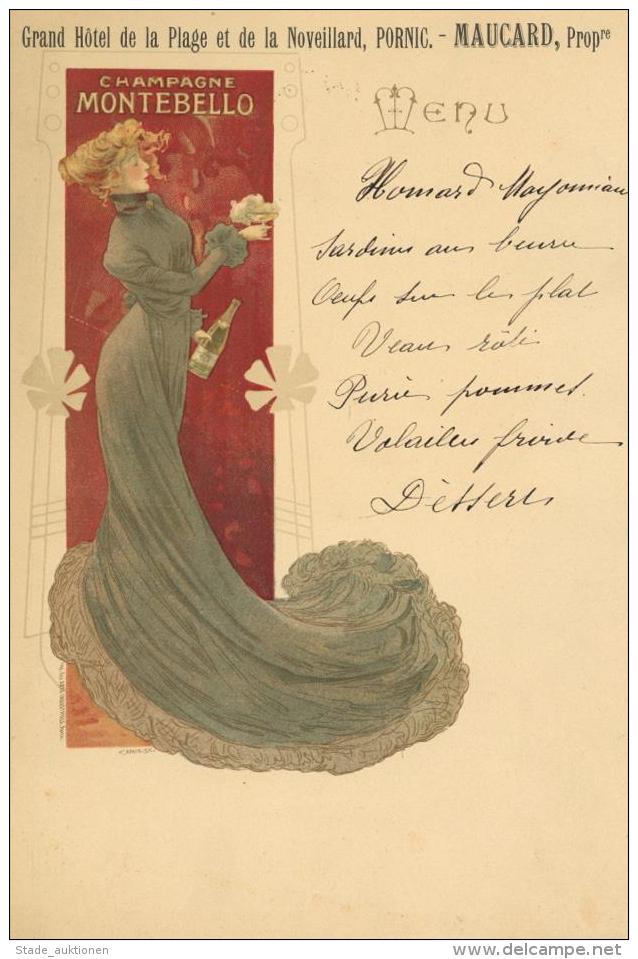 Grand Hôtel de la Plage et de la Noveillard, PORNIC. - MAUCARD, Propre
CHAMPAGNE
MONTEBELLO
Menu
Homard Mayonnian
Sardines au beurre
Oeufs sur les plat
Veau rôti
Purée pommes.
Volailles froide
Dessert
Stade_auktionen
http://www.delcampe.net